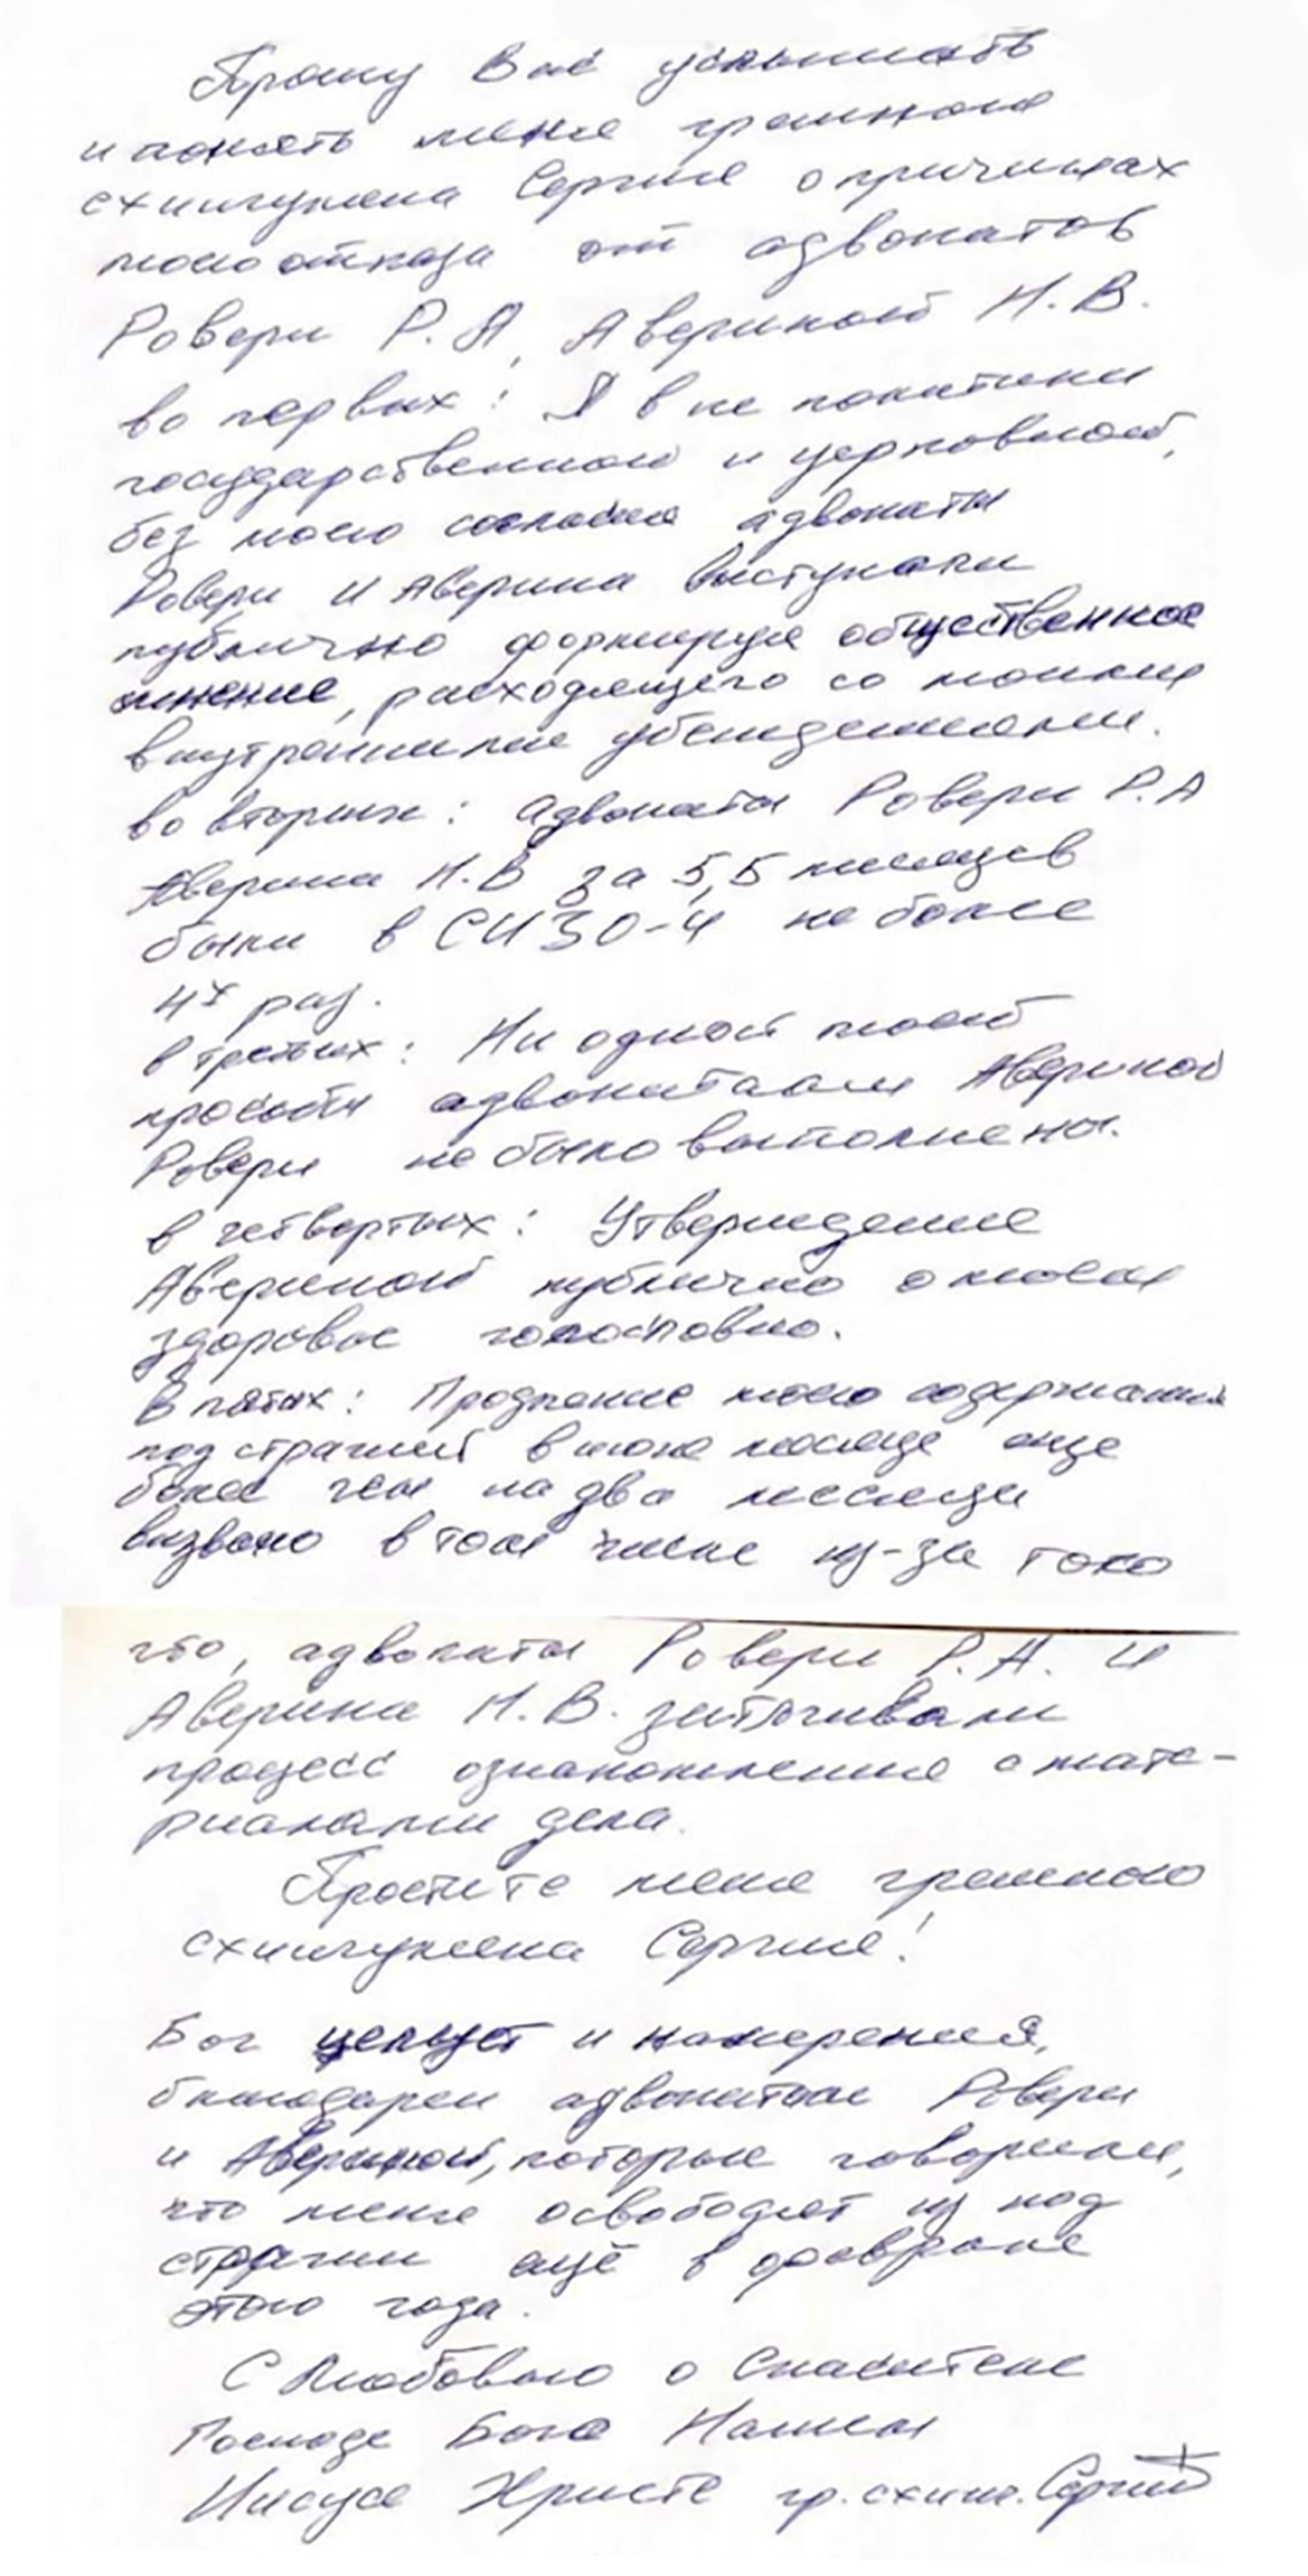 Прошу Вас услышать
и понять меня грешного
схиигумена Сергия о причинах
моего отказа от адвокатов
Ровери Р.А, Авериной Н.В.
во первых: Я вне политики
государственной и церковной,
без моего согласия адвокаты
Ровери и Аверина выступали
публично формируя общественное
мнение, расходящего со моими
внутренними убеждениями.
во вторых: адвокаты Ровери Р.А
Аверина Н.В за 5,5 месяцев
были в СИЗО-4 не более
4х раз.
в третьих: Ни одной моей
просьбы адвокатами Авериной
Ровери не было выполнены.
в четвертых: Утверждение
Авериной публично о моем
здоровье голословно.
В пятых: Продление моего содержания
под стражей в июне месяце еще
более чем на два месяца
вызвано в том числе из-за того
что, адвокаты Ровери Р.А. и
Аверина Н.В. затягивали
процесс ознакомления с мате-
риалами дела.
Простите меня грешного
схиигумена Сергия!
Бог целует и намерения,
благодарен адвокатам Ровери
и Авериной, которые говорили,
что меня освободят из под
стражи ещё в феврале
этого года.
С Любовью о Спасителе
Господе Боге Нашем
Иисусе Христе гр. схииг. Сергий